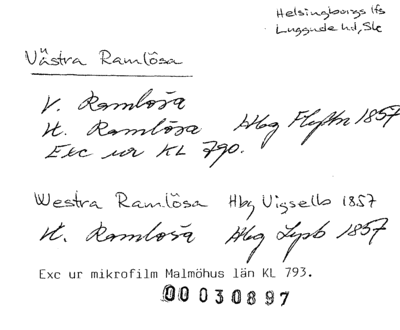 Helsingborgs lfs
Luggude hd, Sk
Västra Ramlösa
V. Ramlösa
H. Ramlösa Hbg Flyttn 1857
Exc ur KL 790.
Westra Ramlösa Hbg Vigsellb 1857
H. Ramlösa Hbg 1857
Exc ur mikrofilm Malmöhus län KL 793.
00030897